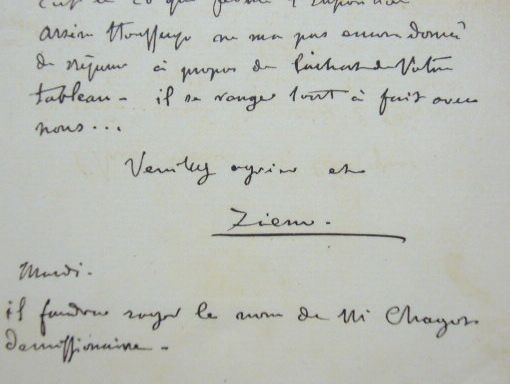 c'est ce que ferme l'exposition
Arsène Houssaye ne m'a pas encore donné
de réponse à propos de l'achat de Votre
tableau - il se range tout à fait avec
nous...
Veuillez agréer etc
Ziem -
Mardi -
il faudra rayer le nom de M Chagot
demissionnaire -